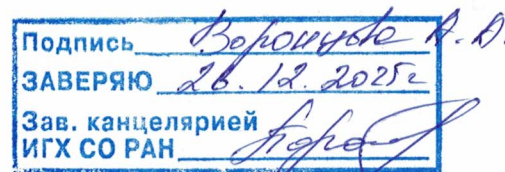 Подпись Воронцова А.Д.
ЗАВЕРЯЮ 26.12.2025г
Зав. канцелярией
ИГХ СО РАН